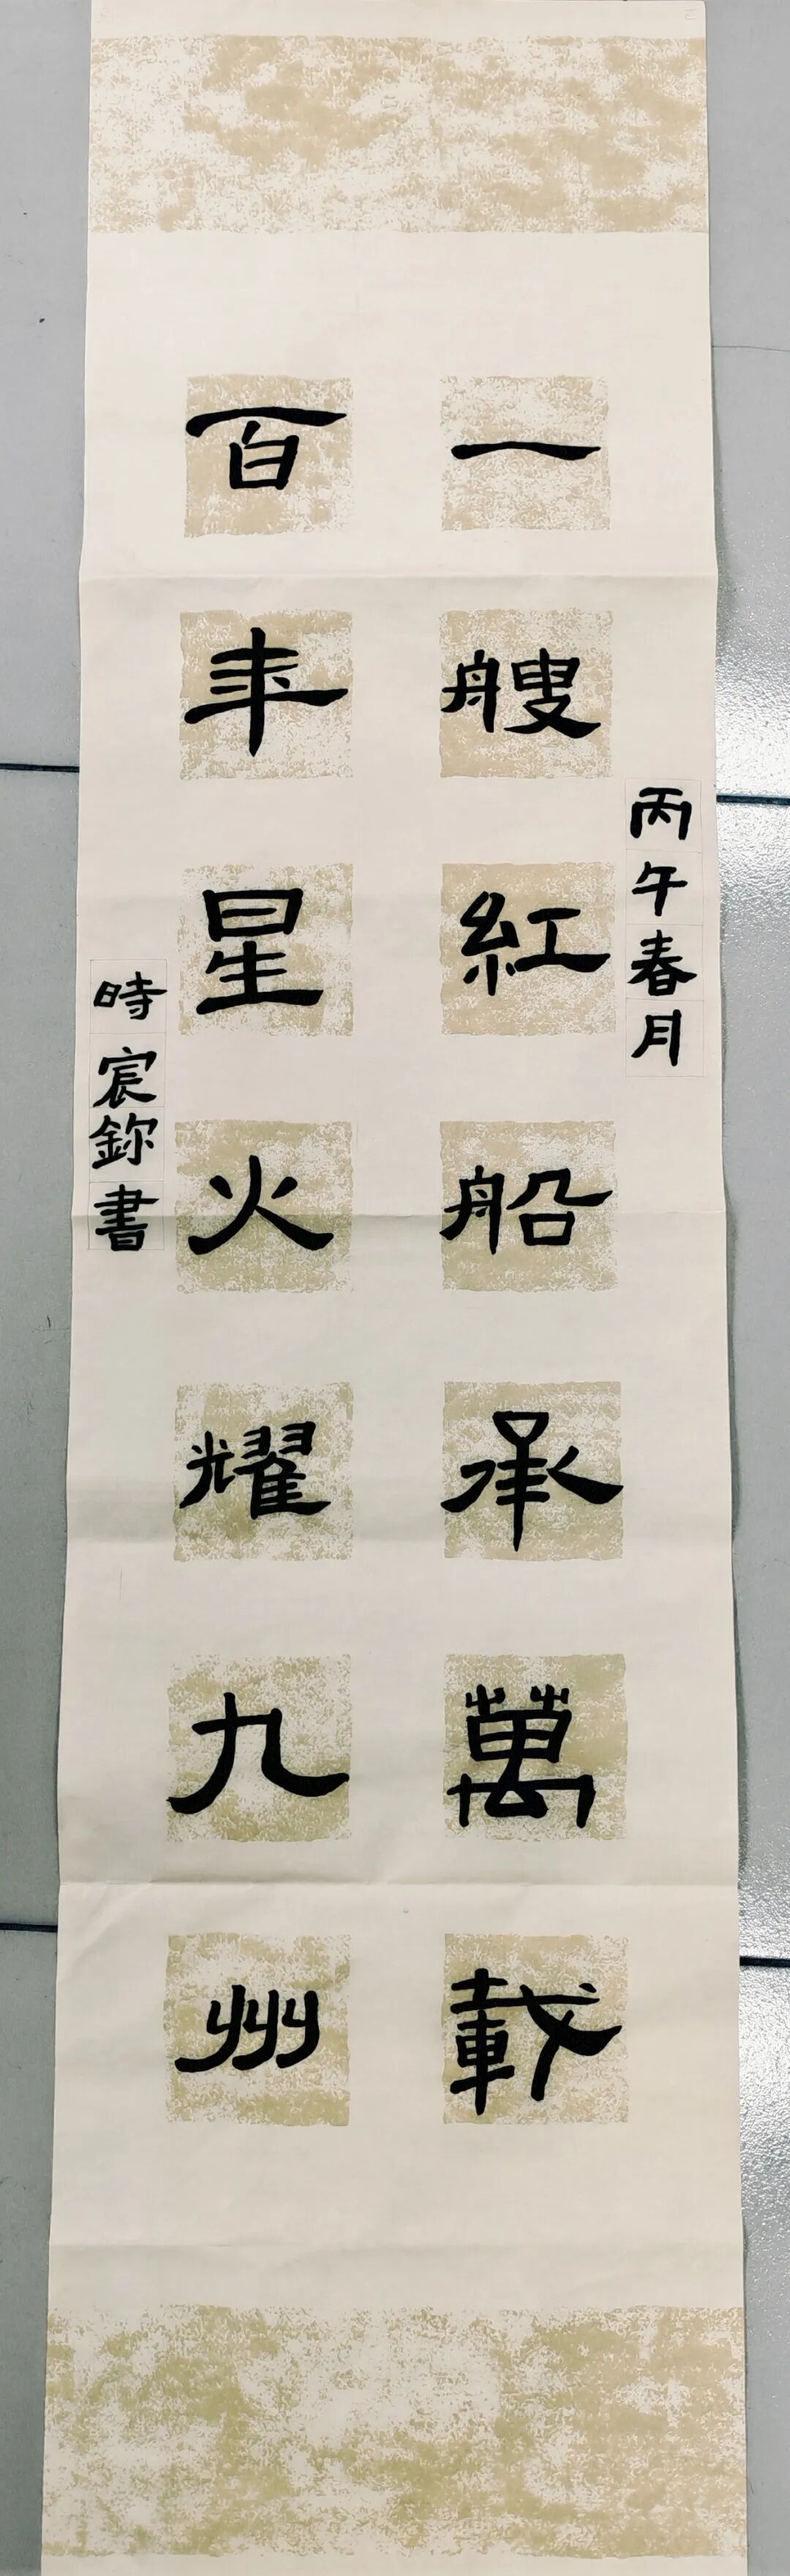 丙午春月
一艘紅船承萬載
百年星火耀九州
時宸鉨書